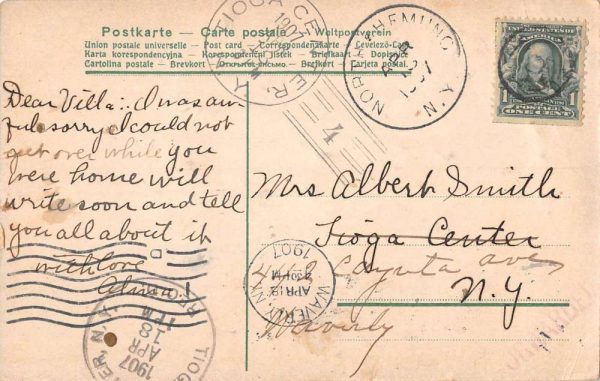 Postkarte — Carte postale — Weltpostverein
Union postale universelle — Post card — Correspondenzkarte — Levelező-Lap
Karta korespondencyjna — Korespondenční lístek — Briefkaart — Dopisnice
Cartolina postale — Brevkort — Открытое письмо. — Brefkort — Tarjeta postal.
TIOGA CENTER
1907
N. Y.
NORTH CHEMUNG
APR
1907
N. Y.
POSTAGE
ONE CENT
1
4
Dear Villa:: I was aw
ful sorry I could not
get over while you
were home will
write soon and tell
you all about it
with love
Alma
Mrs Albert Smith
Tioga Center
Cayuta ave
N.Y.
Waverly
WAVERLY, N.Y.
APR 18
1907
TIOGA CENTER, N. Y.
REC'D
1907
APR
18